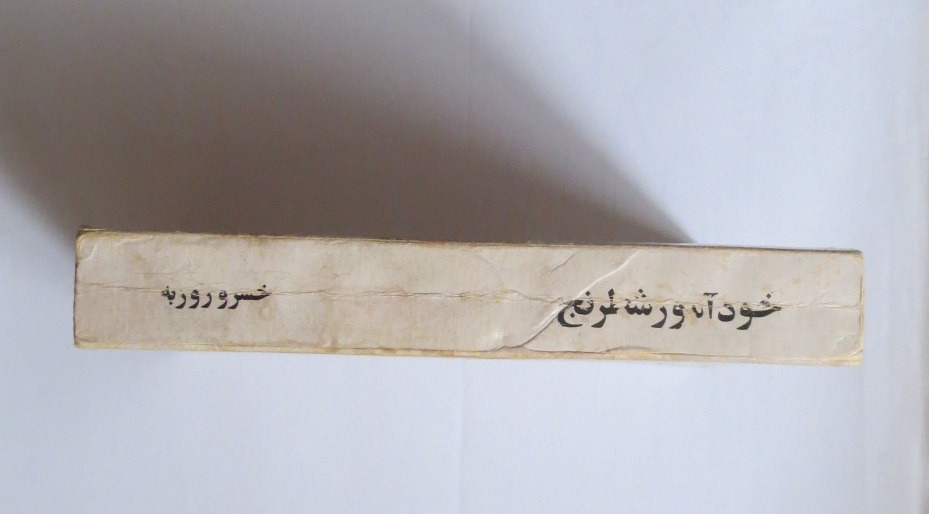 خودآموز شطرنج
خسرو روزبه